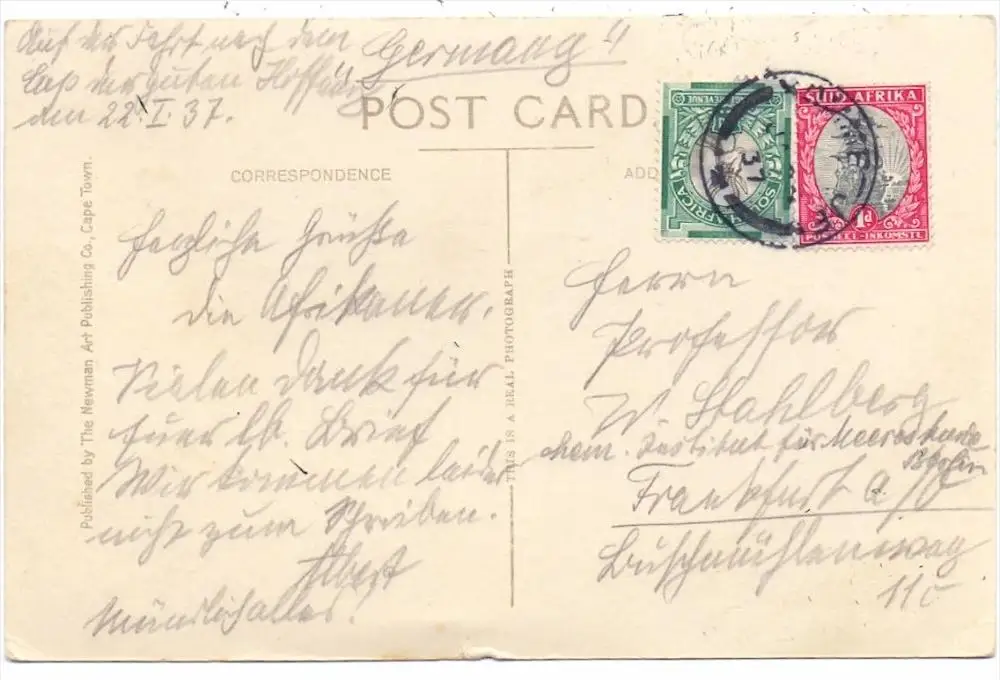 Auf der Fahrt nach dem
Cap der guten Hoffnung
den 22.I.37.
Germany
POST CARD
CORRESPONDENCE
ADD
Herzliche Grüße
die Afrikaner.
Vielen Dank für
Euer lb. Brief
Wir kommen leider
nicht zum Schreiben.
Albert
Mündlich alles!
Published by The Newman Art Publishing Co., Cape Town.
THIS IS A REAL PHOTOGRAPH
REVENUE
SOUTH AFRICA
SUID-AFRIKA
1d
POSSEEL-INKOMSTE
37
Herrn
Professor
W. Stahlberg
chem. Institut für Meereskunde
Berlin
Frankfurt a/O
Buschmühlenweg
11c